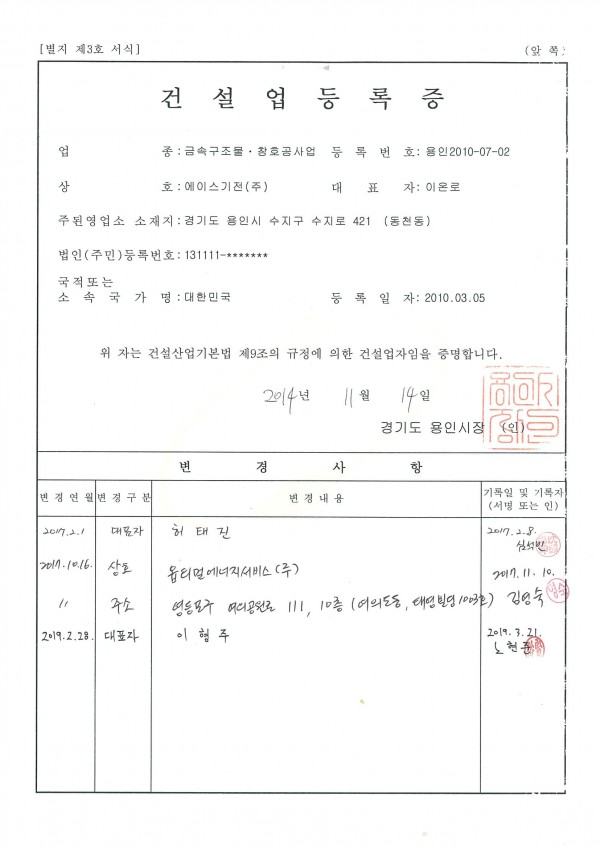 [별지 제3호 서식] (앞 쪽)
건 설 업 등 록 증
업 종 : 금속구조물·창호공사업 등 록 번 호 : 용인2010-07-02
상 호 : 에이스기전(주) 대 표 자 : 이온로
주된영업소 소재지 : 경기도 용인시 수지구 수지로 421 (동천동)
법인(주민)등록번호 : 131111-*******
국적또는
소 속 국 가 명 : 대한민국 등 록 일 자 : 2010.03.05
위 자는 건설산업기본법 제9조의 규정에 의한 건설업자임을 증명합니다.
2014년 11월 14일
경기도 용인시장 (인)
변 경 사 항
변경연월 변경구분 변 경 내 용 기록일 및 기록자
(서명 또는 인)
2017.2.1 대표자 허 태 진 2017.2.8.
심석민
2017.10.16. 상호 옵티멀에너지서비스(주) 2017.11.10.
〃 주소 영등포구 여의공원로 111, 10층 (여의도동, 태영빌딩 1003호) 김영숙
2019.2.28. 대표자 이 형 주 2019.3.21.
노현준